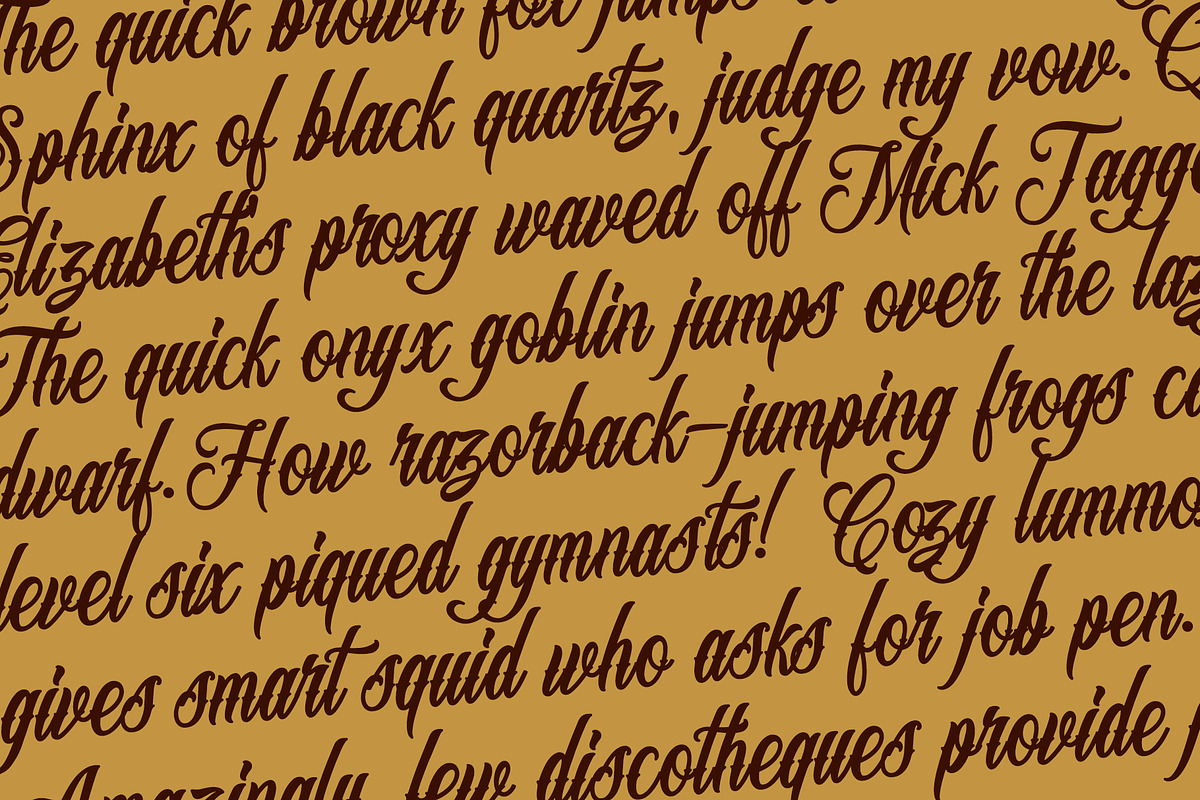 The quick brown fox jumps
Sphinx of black quartz, judge my vow.
Elizabeth's proxy waved off Mick Tagg
The quick onyx goblin jumps over the laz
dwarf. How razorback-jumping frogs ca
level six piqued gymnasts! Cozy lummo
gives smart squid who asks for job pen.
Amazingly few discotheques provide